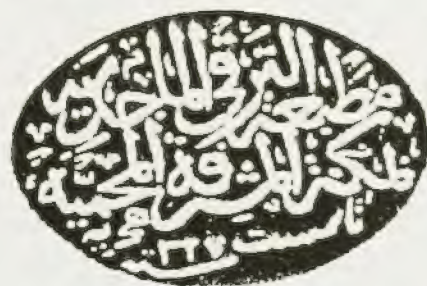 مطبعة الترقي الماجدية
بمكة المشرفة المحمية
تأسست سنة ١٣٢٧